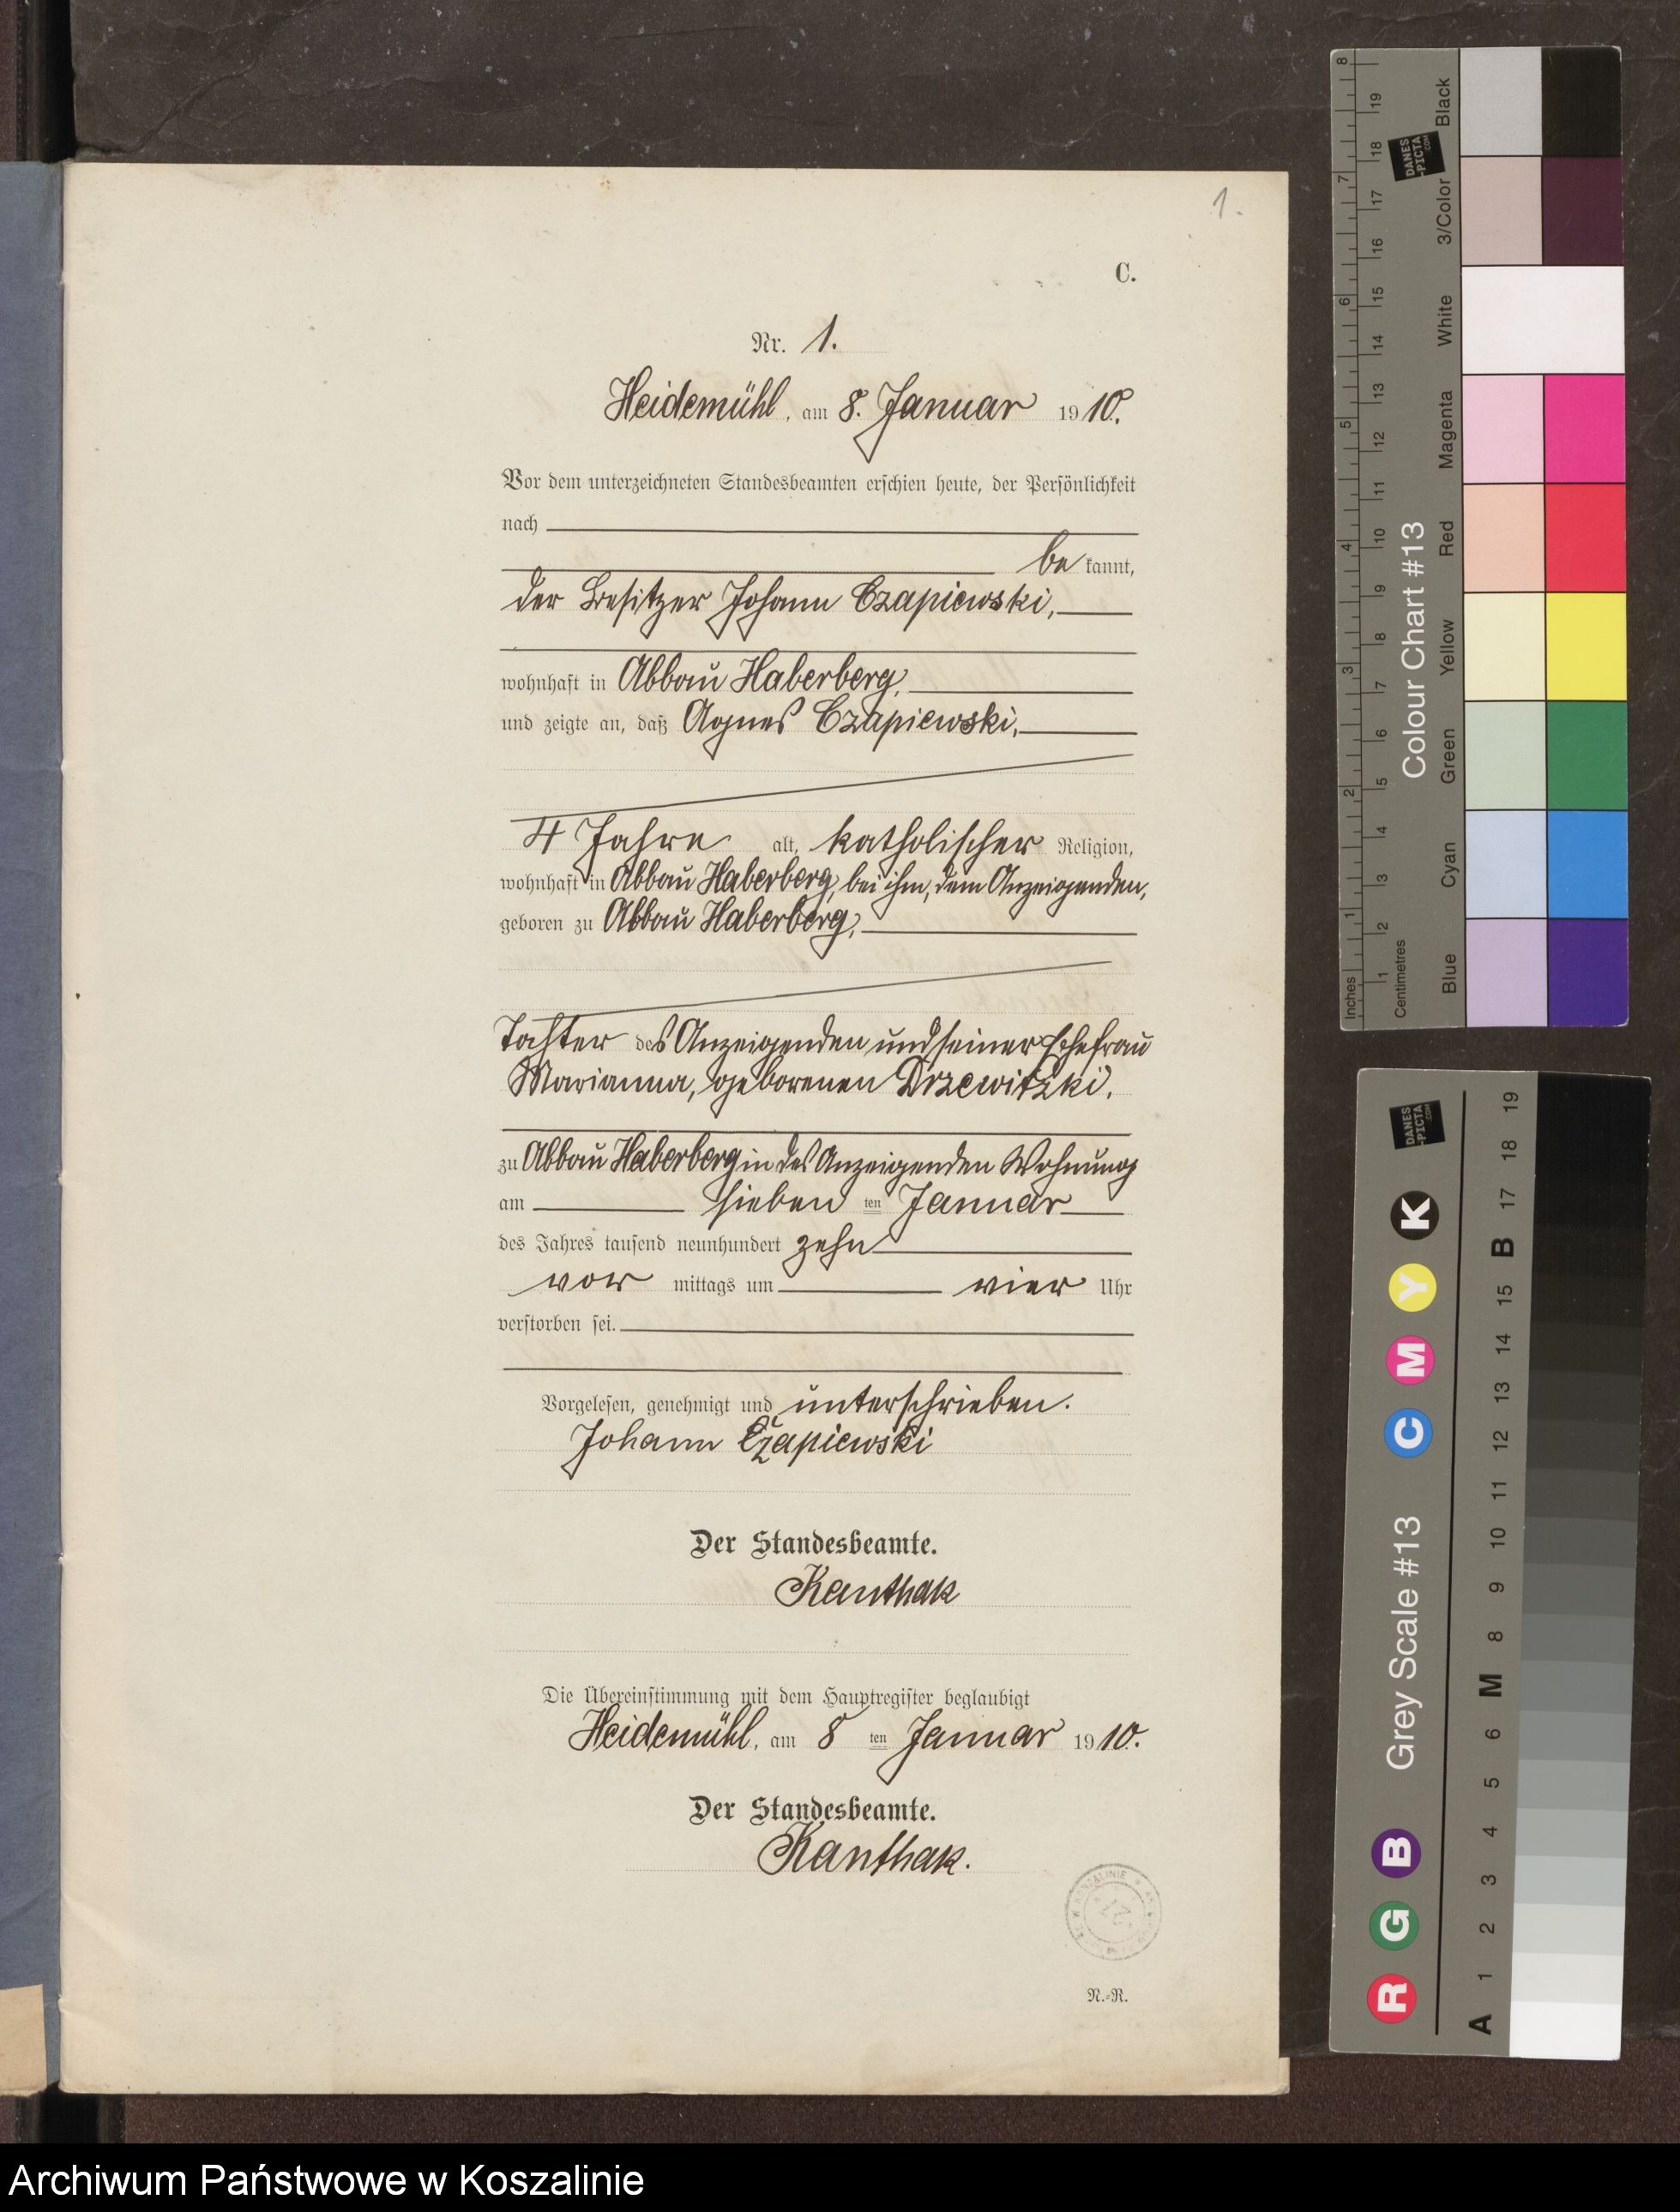 1.
C.
Nr. 1.
Heidemühl, am 8. Januar 1910.
Vor dem unterzeichneten Standesbeamten erschien heute, der Persönlichkeit
nach
be kannt,
der Besitzer Johann Czapiewski,
wohnhaft in Abbau Haberberg,
und zeigte an, daß Agnes Czapiewski,
4 Jahre alt, katholischer Religion,
wohnhaft in Abbau Haberberg, bei ihm, dem Anzeigenden,
geboren zu Abbau Haberberg,
Tochter des Anzeigenden und seiner Ehefrau
Marianna, geborenen Drzewitzki.
zu Abbau Haberberg in des Anzeigenden Wohnung
am sieben ten Januar
des Jahres tausend neunhundert zehn
vor mittags um vier Uhr
verstorben sei.
Vorgelesen, genehmigt und unterschrieben.
Johann Czapiewski
Der Standesbeamte.
Kanthak
Die Übereinstimmung mit dem Hauptregister beglaubigt
Heidemühl, am 8 ten Januar 1910.
Der Standesbeamte.
Kanthak.
N.-R.
Colour Chart #13
Blue Cyan Green Yellow Red Magenta White 3/Color Black
Inches 1 2 3 4 5 6 7 8
Centimetres 1 2 3 4 5 6 7 8 9 10 11 12 13 14 15 16 17 18 19
DANES-PICTA.COM
Grey Scale #13
R G B C M Y K
A 1 2 3 4 5 6 M 8 9 10 11 12 13 14 15 B 17 18 19
DANES-PICTA.COM
Archiwum Państwowe w Koszalinie